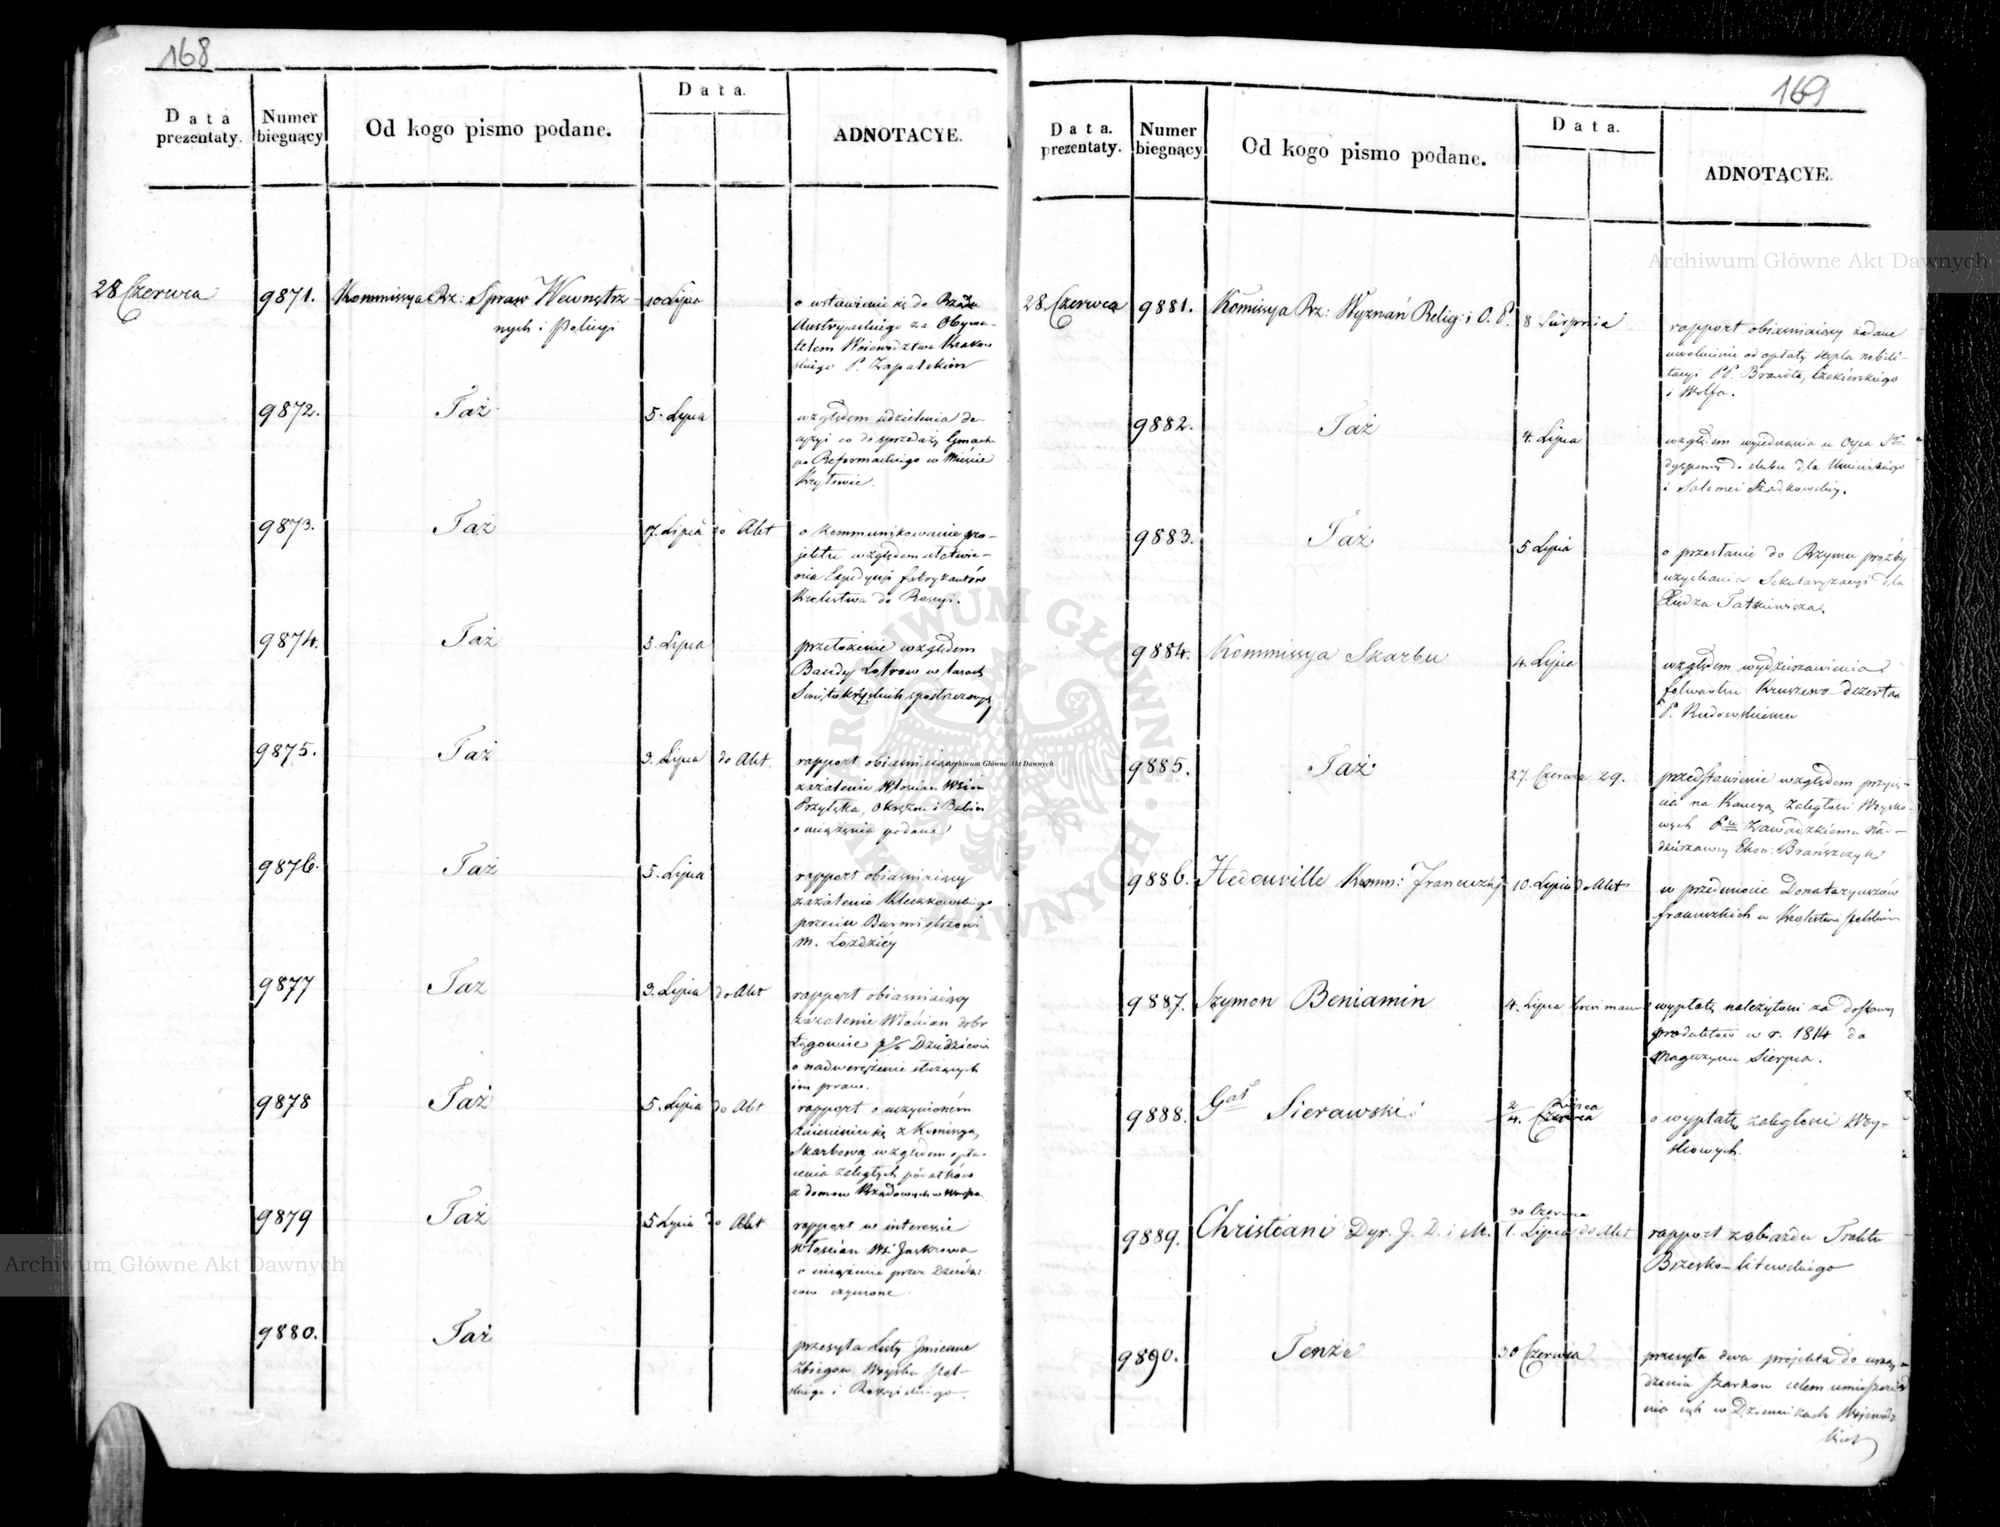 168
Data prezentaty.
Numer biegnący
Od kogo pismo podane.
Data.
ADNOTACYE.
28 Czerwca
9871.
Kommissya Rz: Spraw Wewnętrz-
nych i Policyi
10 Lipca
o wstawienie się do Rządu
Austryackiego za Obywa-
telem Województwa Krakow
skiego P. Zapalskim
9872.
Taż
5. Lipca
względem udzielenia de-
cyzyi co do sprzedaży Gmachu
po Reformackiego w Mieście
9873.
Taż
17. Lipca do Akt
o kommunikowanie pro-
jektu względem ułatwie-
nia Expedycyi fabrykantów
Królestwa do Rossyi.
9874.
Taż
5. Lipca
przełożenie względem
Bandy Łotrów w lasach
9875.
Taż
3. Lipca do Akt.
rapport obiasniaiący
zażalenie Włościan Wsiów
o uciążenia podane
9876.
Taż
5. Lipca
rapport obiasniaiący
zażalenie Kleczkowskiego
przeciw Burmistrzowi
m. Łoździey
9877
Taz
3. Lipca do Akt
rapport obiasniaiący
zażalenie Włościan dóbr
o nadwerężenie służących
im praw.
9878
Taż
5. Lipca do Akt
rapport o uczynionem
zniesieniu się z Komissyą
Skarbową względem opła-
cenia zaległych podatków
z domów Rządowych w
9879
Taż
5 Lipca do Akt
rapport w interessie
Włościan Wsi
o uciążenie przez Dzierża:
cow czynione.
9880.
Taż
przesyła Listy Jmienne
Zbiegów Woyska Pol-
skiego i Rossyiskiego.
169
Data. prezentaty.
Numer biegnący
Od kogo pismo podane.
Data.
ADNOTACYE.
28 Czerwca
9881.
Komissya Rz: Wyznań Relig: i O. P.
8 Sierpnia
rapport obiasniaiący żądane
uwolnienie od opłaty stępla nobili-
tacyi PP. Brandta,
i Wolfa.
9882.
Taż
4. Lipca
względem wyiednania u Oyca Sgo
dyspensy do slubu dla Umińskiego
i Salomei
9883.
Taż
5 Lipca
o przesłanie do Rzymu prożby
uzyskania Sekularyzacyi dla
Xiędza
9884.
Kommissya Skarbu
4. Lipca
względem wydzierżawienia
folwarku Kruszewo
P. Rudowskiemu
9885.
Taż
27. Czerwca 29.
przedstawienie względem przyię-
cia na Kaucyą zaległości Woysko-
wych Pu Zawadzkiemu
dzierżawcy Ekon: Brańszczyk
9886.
Hedouville Komm: Francuzki
10. Lipca do Akt
w przedmiocie Donataryuszów
francuzkich w Królestwie polskim
9887.
Szymon Beniamin
4. Lipca
o wypłatę należytości za dostawę
produktów w r. 1814 do
Magazynu Sierpca.
9888.
Gał Sierawski
2/4. Lipca
o wypłatę zaległości Woy-
skowych.
9889.
Christiani Dyr. J. D. i M.
30 Czerwca
1. Lipca do Akt
rapport z obiazdu Traktu
Brzesko-litewskiego
9890.
Tenże
30 Czerwca
przesyła dwa projekta do urzą-
dzenia celem umieszcze
nia ich w Dziennikach Wojewódz
kich
Archiwum Główne Akt Dawnych
Archiwum Główne Akt Dawnych
Archiwum Główne Akt Dawnych
ARCHIWUM GŁÓWNE AKT DAWNYCH